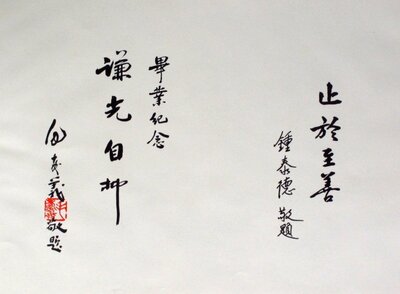 止於至善
鍾泰德 敬題
畢業紀念
謙光自抑
敬題